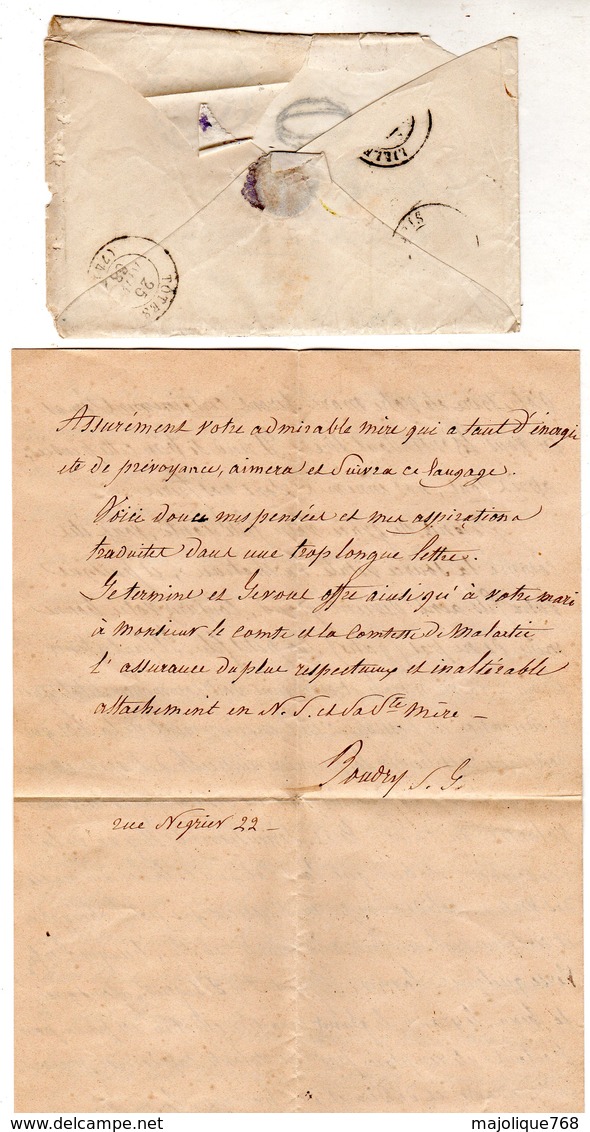 LILLE
TOTES
25
(74)
Assurément votre admirable mère qui a tant d'énergie
et de prévoyance, aimera et suivra ce langage.
Voici donc mes pensées et mes aspirations
traduites dans une trop longue lettre.
Je termine et Je vous offre ainsi qu'à votre mari
à Monsieur le comte et la Comtesse de Malartic
l'assurance du plus respectueux et inaltérable
attachement en N. S. et Sa Ste Mère –
Boudry S. G.
rue Négrier 22 –
majolique768